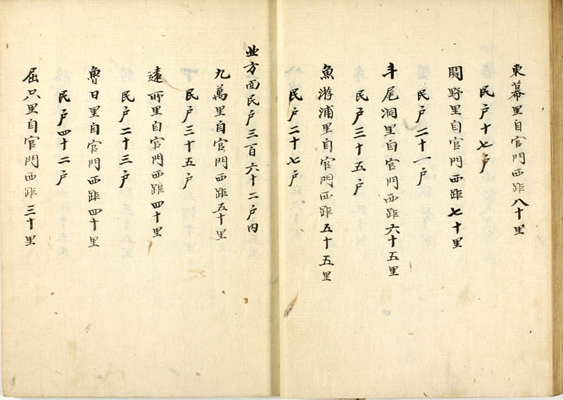 東幕里自官門西距八十里
民戶十七戶
閱野里自官門西距七十里
民戶二十一戶
斗尾洞里自官門西距六十五里
民戶三十五戶
魚游浦里自官門西距五十五里
民戶二十七戶
北方面民戶三百六十二戶內
九萬里自官門西距五十里
民戶三十五戶
遠所里自官門西距四十里
民戶二十三戶
魯日里自官門西距四十里
民戶四十二戶
屈只里自官門西距三十里